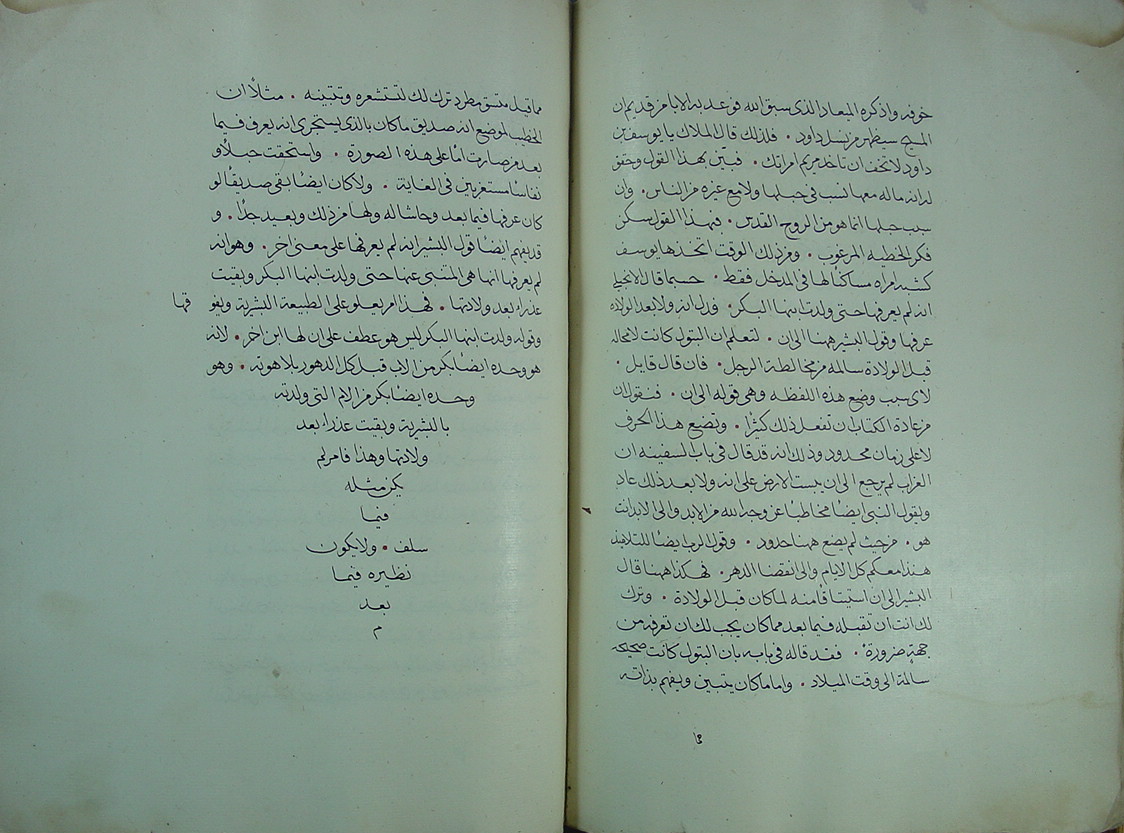 خوفه واذكره الميعاد الذى سبق الله فوعد به الابا من قديم ان
المسيح سيظهر من نسل داود • فلذلك قال الملاك يا يوسف بن
داود لا تخف ان تاخذ مريم امراتك • فبين بهذا القول وحقق
له انه ما له معها نسب فى حبلها ولا مع غيره من الناس • وان
سبب حبلها انما هو من الروح القدس • فبهذا القول سكن
فكر الخطيبه المرغوب • ومن ذلك الوقت اتخذها يوسف
كشبه امراه مساكنا لها فى المدخل فقط • حسبما قال الانجيلى
انه لم يعرفها حتى ولدت ابنها البكر • فدل انه ولا بعد الولاده
عرفها وقول البشير ههنا الى ان • لتعلم ان البتول كانت لا محاله
قبل الولادة سالمه من مخالطة الرجل • فان قال قايل •
لاى سبب وضع هذه اللفظه وهى قوله الى ان • فنقول ان
من عادة الكتاب ان تفعل ذلك كثيرًا • وتضع هذا الحرف
لا على زمان محدود وذلك انه قد قال فى باب السفينه ان
الغراب لم يرجع الى ان يبست الارض على انه ولا بعد ذلك عاد
ويقول النبى ايضًا مخاطبًا عن وجه الله من الابد والى الابد انت
هو • من حيث لم يضع ههنا حدود • وقول الرب ايضًا للتلاميذ
هنذا معكم كل الايام والى انقضا الدهر • فهكذا ههنا قال
البشير الى ان استيثاقا منه لما كان قبل الولادة • وترك
لك انت ان تقبله فيما بعد مما كان يجب لك ان تعرفه من
جهة ضرورة • فقد قاله فى بابه بان البتول كانت صحيحه
سالمة الى وقت الميلاد • واما ما كان يتبين ويفهم بذاته
مما قيل متسق مطرد ترك لك لتستشعره وتتبينه • مثلًا ان
الخطيب لموضع انه صديق ما كان بالذى يستجرى انه يعرف فيما
بعد من صارت امًا على هذه الصورة • واستحقت حبلًا و
نفاسًا مستغربين فى الغاية • ولا كان ايضًا بقى صديقًا لو
كان عرفها فيما بعد وحاشا له ولها من ذلك وبعيد جدًا • و
قد يفهم ايضًا قول البشير انه لم يعرفها على معنى اخر • وهو انه
لم يعرفها انها هى المتنبى عنها حتى ولدت ابنها البكر وبقيت
عذراء بعد ولادتها • فهذا امر يعلو على الطبيعة البشرية ويفو قها
وقوله ولدت ابنها البكر ليس هو عطف على ان لها ابن اخر • لانه
هو وحده ايضًا بكر من الاب قبل كل الدهور بلاهوته • وهو
وحده ايضًا بكر من الام التى ولدته
بالبشرية وبقيت عذراء بعد
ولادتها وهذا فامر لم
يكن مثله
فيما
سلف • ولا يكون
نظيره فيما
بعد
م